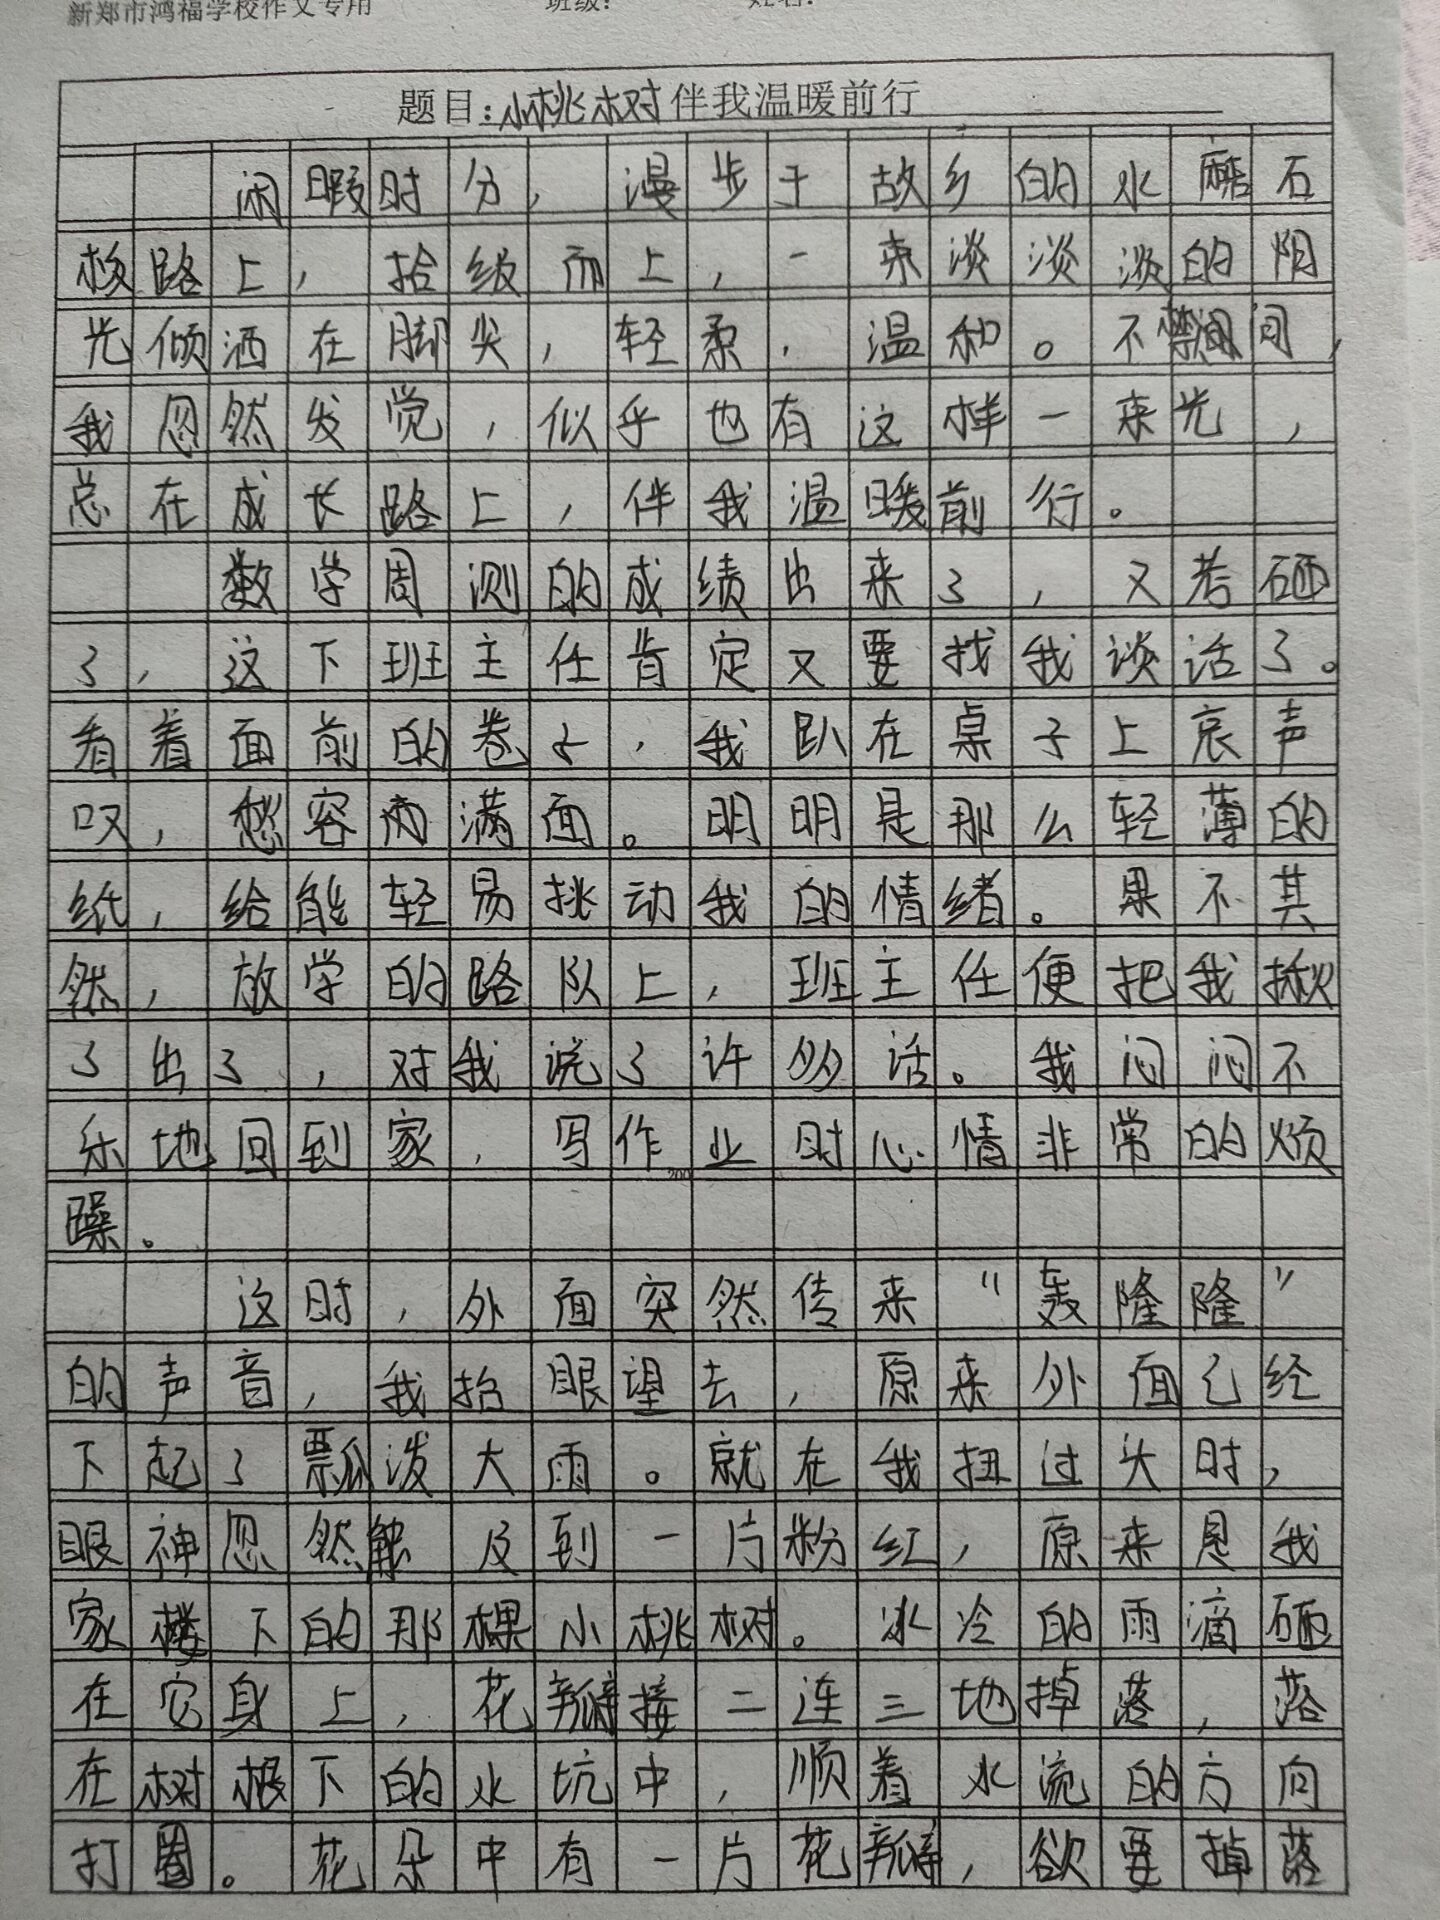 新郑市鸿福学校作文专用 班级: 姓名:
题目:小桃树伴我温暖前行
闲暇时分，漫步于故乡的水磨石
板路上，拾级而上，一束淡淡淡的阳
光倾洒在脚尖，轻柔，温和。不禁间，
我忽然发觉，似乎也有这样一束光，
总在成长路上，伴我温暖前行。
数学周测的成绩出来了，又考砸
了，这下班主任肯定又要找我谈话了。
看着面前的卷子，我趴在桌子上哀声
叹，愁容满面。明明是那么轻薄的
纸，给能轻易挑动我的情绪。果不其
然，放学的路队上，班主任便把我揪
了出了，对我说了许多话。我闷闷不
乐地回到家，写作业时心情非常的烦
躁。
200
这时，外面突然传来“轰隆隆”
的声音，我抬眼望去，原来外面已经
下起了瓢泼大雨。就在我扭过头时，
眼神忽然触及到一片粉红，原来是我
家楼下的那棵小桃树。冰冷的雨滴砸
在它身上，花瓣接二连三地掉落，落
在树根下的水坑中，顺着水流的方向
打圈。花朵中有一片花瓣，欲要掉落